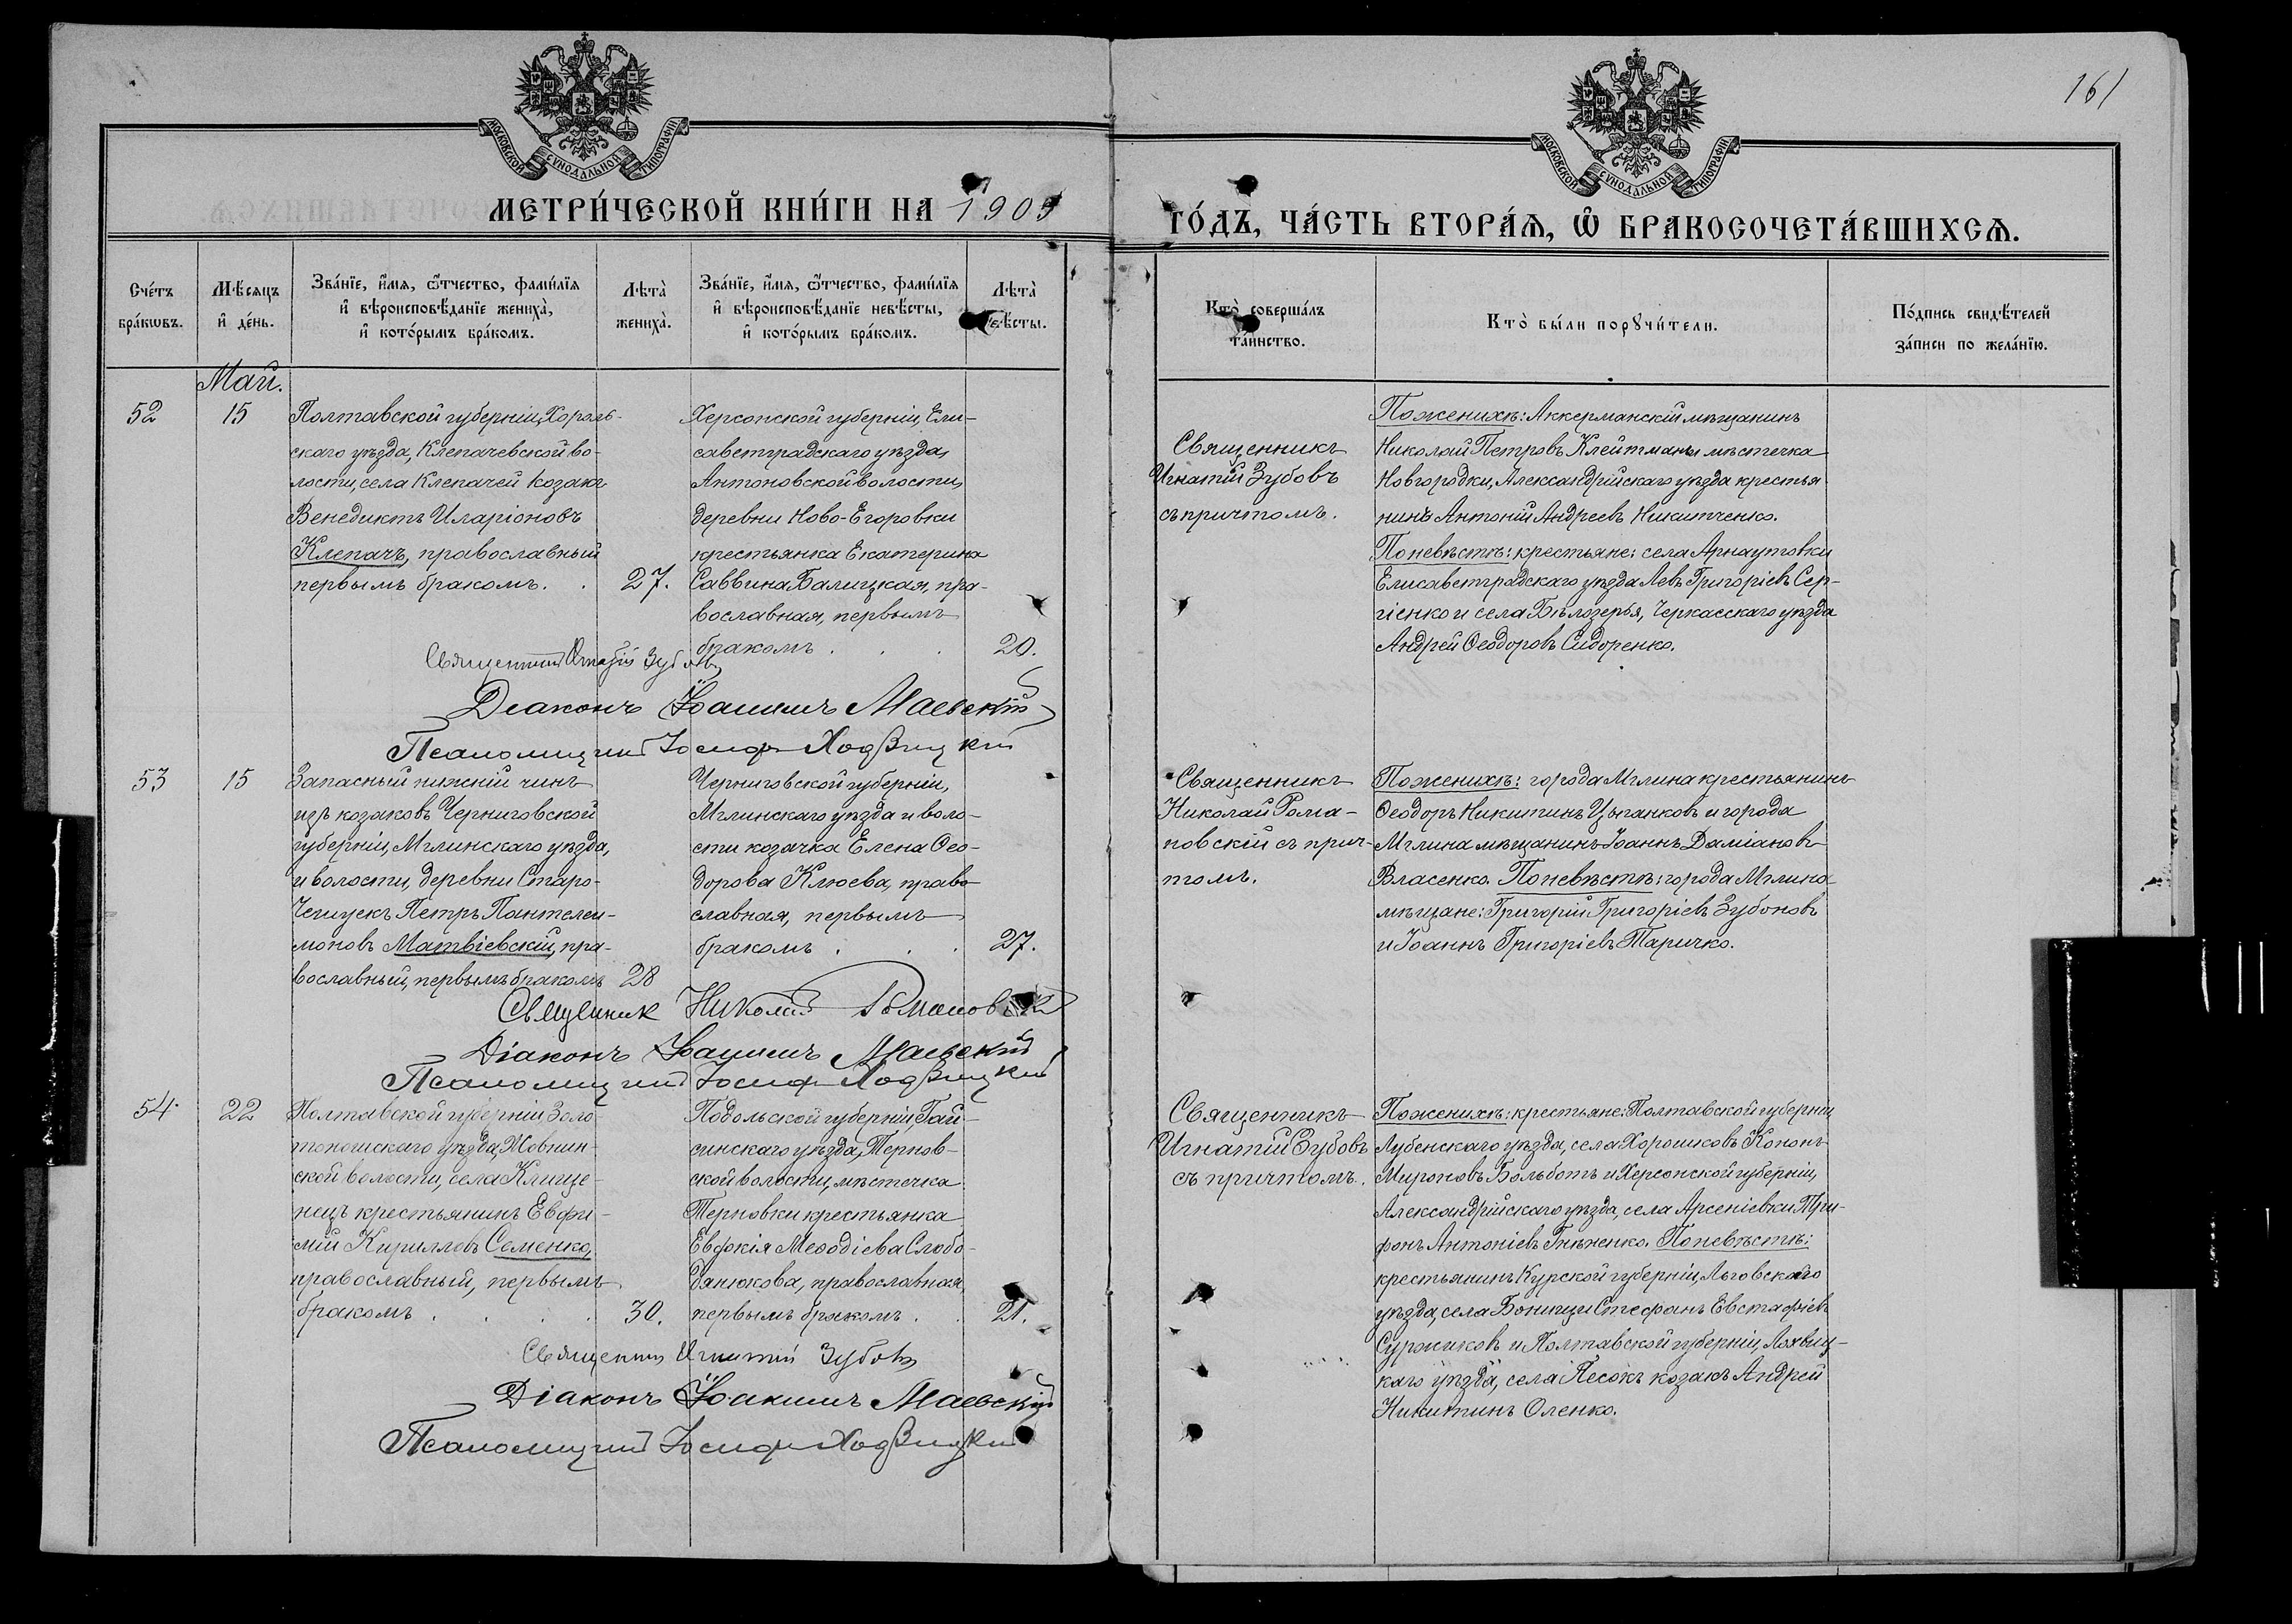 161
МОСКОВСКОЙ СѴНОДАЛЬНОЙ ТИПОГРАФІИ
МОСКОВСКОЙ СѴНОДАЛЬНОЙ ТИПОГРАФІИ
МЕТРИ́ЧЕСКОЙ КНИ́ГИ НА 1909
ГО́ДЪ, ЧА́СТЬ ВТОРА́Ѧ, Ѽ БРАКОСОЧЕТА́ВШИХСѦ.
Сче́тъ
бра́кѡвъ.
Мѣ́сѧцъ
и҆ де́нь.
Зва́нїе, и҆́мѧ, ѻ҆́тчество, фами́лїѧ
и҆ вѣроисповѣ́данїе жениха̀,
и҆ кото́рымъ бра́комъ.
Лѣта̀
жениха̀.
Зва́нїе, и҆́мѧ, ѻ҆́тчество, фами́лїѧ
и҆ вѣроисповѣ́данїе невѣ́сты,
и҆ кото́рымъ бра́комъ.
Лѣта̀
невѣ́сты.
Кто̀ соверша́лъ
та́инство.
Кто̀ бы́ли порꙋчи́тели.
По́дпись свидѣ́телей
за́писи по жела́нїю.
Май.
52
15
Полтавской губерніи, Хороль-
скаго уѣзда, Клепачевской во-
лости, села Клепачей козакъ
Венедиктъ Иларіоновъ
Клепачъ, православный
первымъ бракомъ. . 27.
Херсонской губерніи, Ели-
саветградскаго уѣзда,
Антоновской волости,
деревни Ново-Егоровки
крестьянка Екатерина
Саввина Балицкая, пра-
вославная, первымъ
бракомъ . . . 20.
Священникъ
Игнатій Зубовъ
съ причтомъ.
По женихѣ: Аккерманскій мѣщанинъ
Николай Петровъ Клейтманъ и мѣстечка
Новгородки, Александрійскаго уѣзда крестья
нинъ Антоній Андреевъ Никитченко.
По невѣстѣ: крестьяне: села Арнаутовки
Елисаветградскаго уѣзда Левъ Григоріевъ Сер-
гіенко и села Бѣлозерья, Черкасскаго уѣзда
Андрей Ѳеодоровъ Сидоренко.
Священникъ Игнатій Зубовъ
Діаконъ Іоакимъ Маевскій
Псаломщикъ Іосифъ Ходзицкій
53
15
Запасный нижній чинъ
изъ козаковъ Черниговской
губерніи, Мглинскаго уѣзда,
и волости, деревни Старо-
Чешуекъ Петръ Пантелеи-
моновъ Матвіевскій, пра-
вославный, первымъ бракомъ 28
Черниговской губерніи,
Мглинскаго уѣзда и воло-
сти козачка Елена Ѳео-
дорова Клюева, право
славная, первымъ
бракомъ . . . 27.
Священникъ
Николай Рома-
новскій съ прич-
томъ.
По женихѣ: города Мглина крестьянинъ
Ѳеодоръ Никитинъ Цыганковъ и города
Мглина мѣщанинъ Іоаннъ Даміановъ
Власенко. По невѣстѣ: города Мглина
мѣщане: Григорій Григоріевъ Зубоновъ
и Іоаннъ Григоріевъ Таричко.
Священник Николай Романовскій
Діаконъ Іоакимъ Маевскій
Псаломщикъ Іосифъ Ходзицкій
54.
22
Полтавской губерніи, Золо-
тоношскаго уѣзда, Жовнин-
ской волости, села Клище-
нецъ крестьянинъ Евфи-
мій Кирилловъ Семенко,
православный, первымъ
бракомъ . . . . 30.
Подольской губерніи, Гай-
синскаго уѣзда, Тернов-
ской волости, мѣстечка
Терновки крестьянка
Евдокія Меѳодіева Слобо-
дянюкова, православная,
первымъ бракомъ . . 21.
Священникъ
Игнатій Зубовъ
съ причтомъ.
По женихѣ: крестьяне: Полтавской губерніи
Лубенскаго уѣзда, села Хорошковъ Кононъ
Мироновъ Больботъ и Херсонской губерніи,
Александрійскаго уѣзда, села Арсеніевки Три-
фонъ Антоніевъ Гнѣненко. По невѣстѣ:
крестьянинъ Курской губерніи, Льговскаго
уѣзда, села Боницы Стефанъ Евстафіевъ
Суржиковъ и Полтавской губерніи, Лохвиц-
каго уѣзда, села Песокъ козакъ Андрей
Никитинъ Оленко.
Священник Игнатій Зубовъ
Діаконъ Іоакимъ Маевскій
Псаломщикъ Іосифъ Ходзицкій